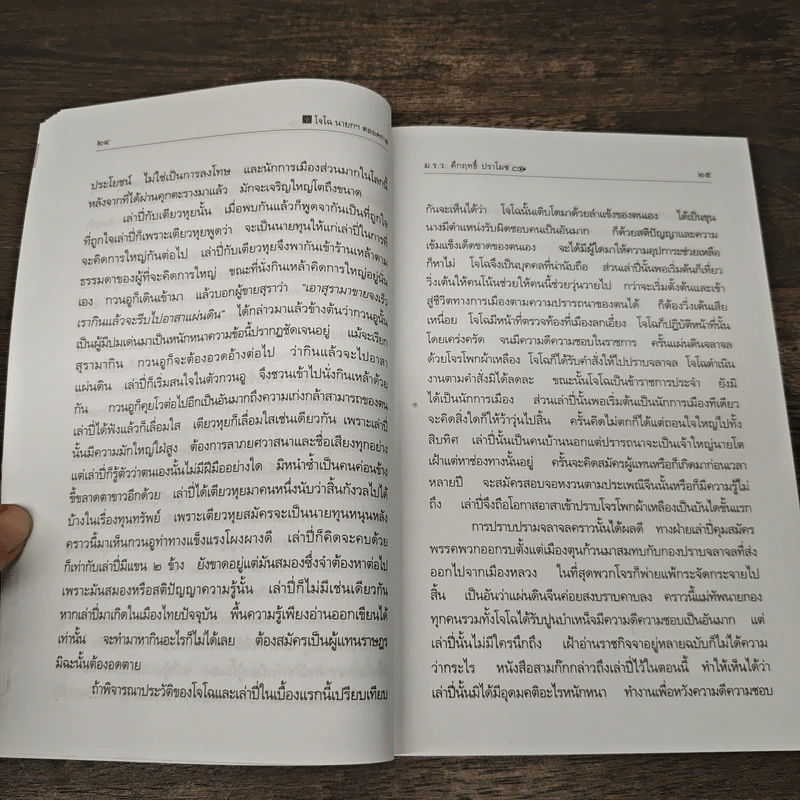 ๒๔
โจโฉ นายกฯ ตลอดกาล
ประโยชน์ ไม่ใช่เป็นการลงโทษ และนักการเมืองส่วนมากในโลกนี้
หลังจากที่ได้ผ่านคุกตะรางมาแล้ว มักจะเจริญใหญ่โตถึงขนาด
เล่าปี่กับเตียวหุยนั้น เมื่อพบกันแล้วก็พูดจากันเป็นที่ถูกใจ
ที่ถูกใจเล่าปี่ก็เพราะเตียวหุยพูดว่า จะเป็นนายทุนให้แก่เล่าปี่ในการที่
จะคิดการใหญ่กันต่อไป เล่าปี่กับเตียวหุยจึงพากันเข้าร้านเหล้าตาม
ธรรมดาของผู้ที่จะคิดการใหญ่ ขณะที่นั่งกินเหล้าคิดการใหญ่อยู่นั้น
เอง กวนอูก็เดินเข้ามา แล้วบอกผู้ขายสุราว่า "เอาสุรามาขายจงเร็ว
เรากินแล้วจะรีบไปอาสาแผ่นดิน" ได้กล่าวมาแล้วข้างต้นว่ากวนอูนั้น
เป็นผู้มีปมเด่นมาเป็นหนักหนาความข้อนี้ปรากฏชัดเจนอยู่ แม้จะเรียก
สุรามากิน กวนอูก็จะต้องอวดอ้างต่อไป ว่ากินแล้วจะไปอาสา
แผ่นดิน เล่าปี่ก็เริ่มสนใจในตัวกวนอู จึงชวนเข้าไปนั่งกินเหล้าด้วย
กัน กวนอูก็คุยโวต่อไปอีกเป็นอันมากถึงความเก่งกล้าสามารถของตน
เล่าปี่ได้ฟังแล้วก็เลื่อมใส เตียวหุยก็เลื่อมใสเช่นเดียวกัน เพราะเล่าปี่
นั้นมีความมักใหญ่ใฝ่สูง ต้องการลาภยศวาสนาและชื่อเสียงทุกอย่าง
แต่เล่าปี่ก็รู้ตัวว่าตนเองนั้นไม่มีฝีมืออย่างใด มิหนำซ้ำเป็นคนค่อนข้าง
ขี้ขลาดตาขาวอีกด้วย เล่าปี่ได้เตียวหุยมาคนหนึ่งนับว่าสิ้นกังวลไปได้
บ้างในเรื่องทุนทรัพย์ เพราะเตียวหุยสมัครจะเป็นนายทุนหนุนหลัง
คราวนี้มาเห็นกวนอูท่าทางแข็งแรงโผงผางดี เล่าปี่ก็คิดจะคบด้วย
ก็เท่ากับเล่าปี่มีแขน ๒ ข้าง ยังขาดอยู่แต่มันสมองซึ่งจำต้องหาต่อไป
เพราะมันสมองหรือสติปัญญาความรู้นั้น เล่าปี่ก็ไม่มีเช่นเดียวกัน
หากเล่าปี่มาเกิดในเมืองไทยปัจจุบัน พื้นความรู้เพียงอ่านออกเขียนได้
เท่านั้น จะทำมาหากินอะไรก็ไม่ได้เลย ต้องสมัครเป็นผู้แทนราษฎร
มิฉะนั้นต้องอดตาย
ถ้าพิจารณาประวัติของโจโฉและเล่าปี่ในเบื้องแรกนี้เปรียบเทียบ
ม.ร.ว. คึกฤทธิ์ ปราโมช
๒๕
กันจะเห็นได้ว่า โจโฉนั้นเติบโตมาด้วยลำแข้งของตนเอง ได้เป็นขุน
นางมีตำแหน่งรับผิดชอบคนเป็นอันมาก ก็ด้วยสติปัญญาและความ
เข้มแข็งเด็ดขาดของตนเอง จะได้มีผู้ใดมาให้ความอุปการะช่วยเหลือ
ก็หาไม่ โจโฉจึงเป็นบุคคลที่น่านับถือ ส่วนเล่าปี่นั้นพอเริ่มต้นก็เที่ยว
วิ่งเต้นให้คนโน้นช่วยให้คนนี้ช่วยวุ่นวายไป กว่าจะเริ่มตั้งต้นและเข้า
สู่ชีวิตทางการเมืองตามความปรารถนาของตนได้ ก็ต้องวิ่งเต้นเสีย
เหนื่อย โจโฉมีหน้าที่ตรวจท้องที่เมืองลกเอี๋ยง โจโฉก็ปฏิบัติหน้าที่นั้น
โดยเคร่งครัด จนมีความดีความชอบในราชการ ครั้นแผ่นดินจลาจล
ด้วยโจรโพกผ้าเหลือง โจโฉก็ได้รับคำสั่งให้ไปปราบจลาจล โจโฉดำเนิน
งานตามคำสั่งมิได้ลดละ ขณะนั้นโจโฉเป็นข้าราชการประจำ ยังมิ
ได้เป็นนักการเมือง ส่วนเล่าปี่นั้นพอเริ่มต้นก็เป็นนักการเมืองทีเดียว
จะคิดสิ่งใดก็ให้ว้าวุ่นไปสิ้น ครั้นคิดไม่ตกก็ได้แต่ถอนใจใหญ่ไปทั้ง
สิบทิศ เล่าปี่นั้นเป็นคนบ้านนอกแต่ปรารถนาจะเป็นเจ้าใหญ่นายโต
เฝ้าแต่หาช่องทางนั้นอยู่ ครั้นจะคิดสมัครผู้แทนหรือก็เกิดมาก่อนเวลา
หลายปี จะสมัครสอบจอหงวนตามประเพณีจีนนั้นหรือก็มีความรู้ไม่
ถึง เล่าปี่จึงถือโอกาสอาสาเข้าปราบโจรโพกผ้าเหลืองเป็นบันไดขั้นแรก
การปราบปรามจลาจลคราวนั้นได้ผลดี ทางฝ่ายเล่าปี่คุมสมัคร
พรรคพวกออกรบตั้งแต่เมืองตุนก้วนมาสมทบกับกองปราบจลาจลที่ส่ง
ออกไปจากเมืองหลวง ในที่สุดพวกโจรก็พ่ายแพ้กระจัดกระจายไป
สิ้น เป็นอันว่าแผ่นดินจีนค่อยสงบราบคาบลง คราวนี้แม่ทัพนายกอง
ทุกคนรวมทั้งโจโฉได้รับปูนบำเหน็จมีความดีความชอบเป็นอันมาก แต่
เล่าปี่นั้นไม่มีใครนึกถึง เฝ้าอ่านราชกิจจาอยู่หลายฉบับก็ไม่ได้ความ
ว่ากระไร หนังสือสามก๊กกล่าวถึงเล่าปี่ไว้ในตอนนี้ ทำให้เห็นได้ว่า
เล่าปี่นั้นมิได้มีอุดมคติอะไรหนักหนา ทำงานเพื่อหวังความดีความชอบ